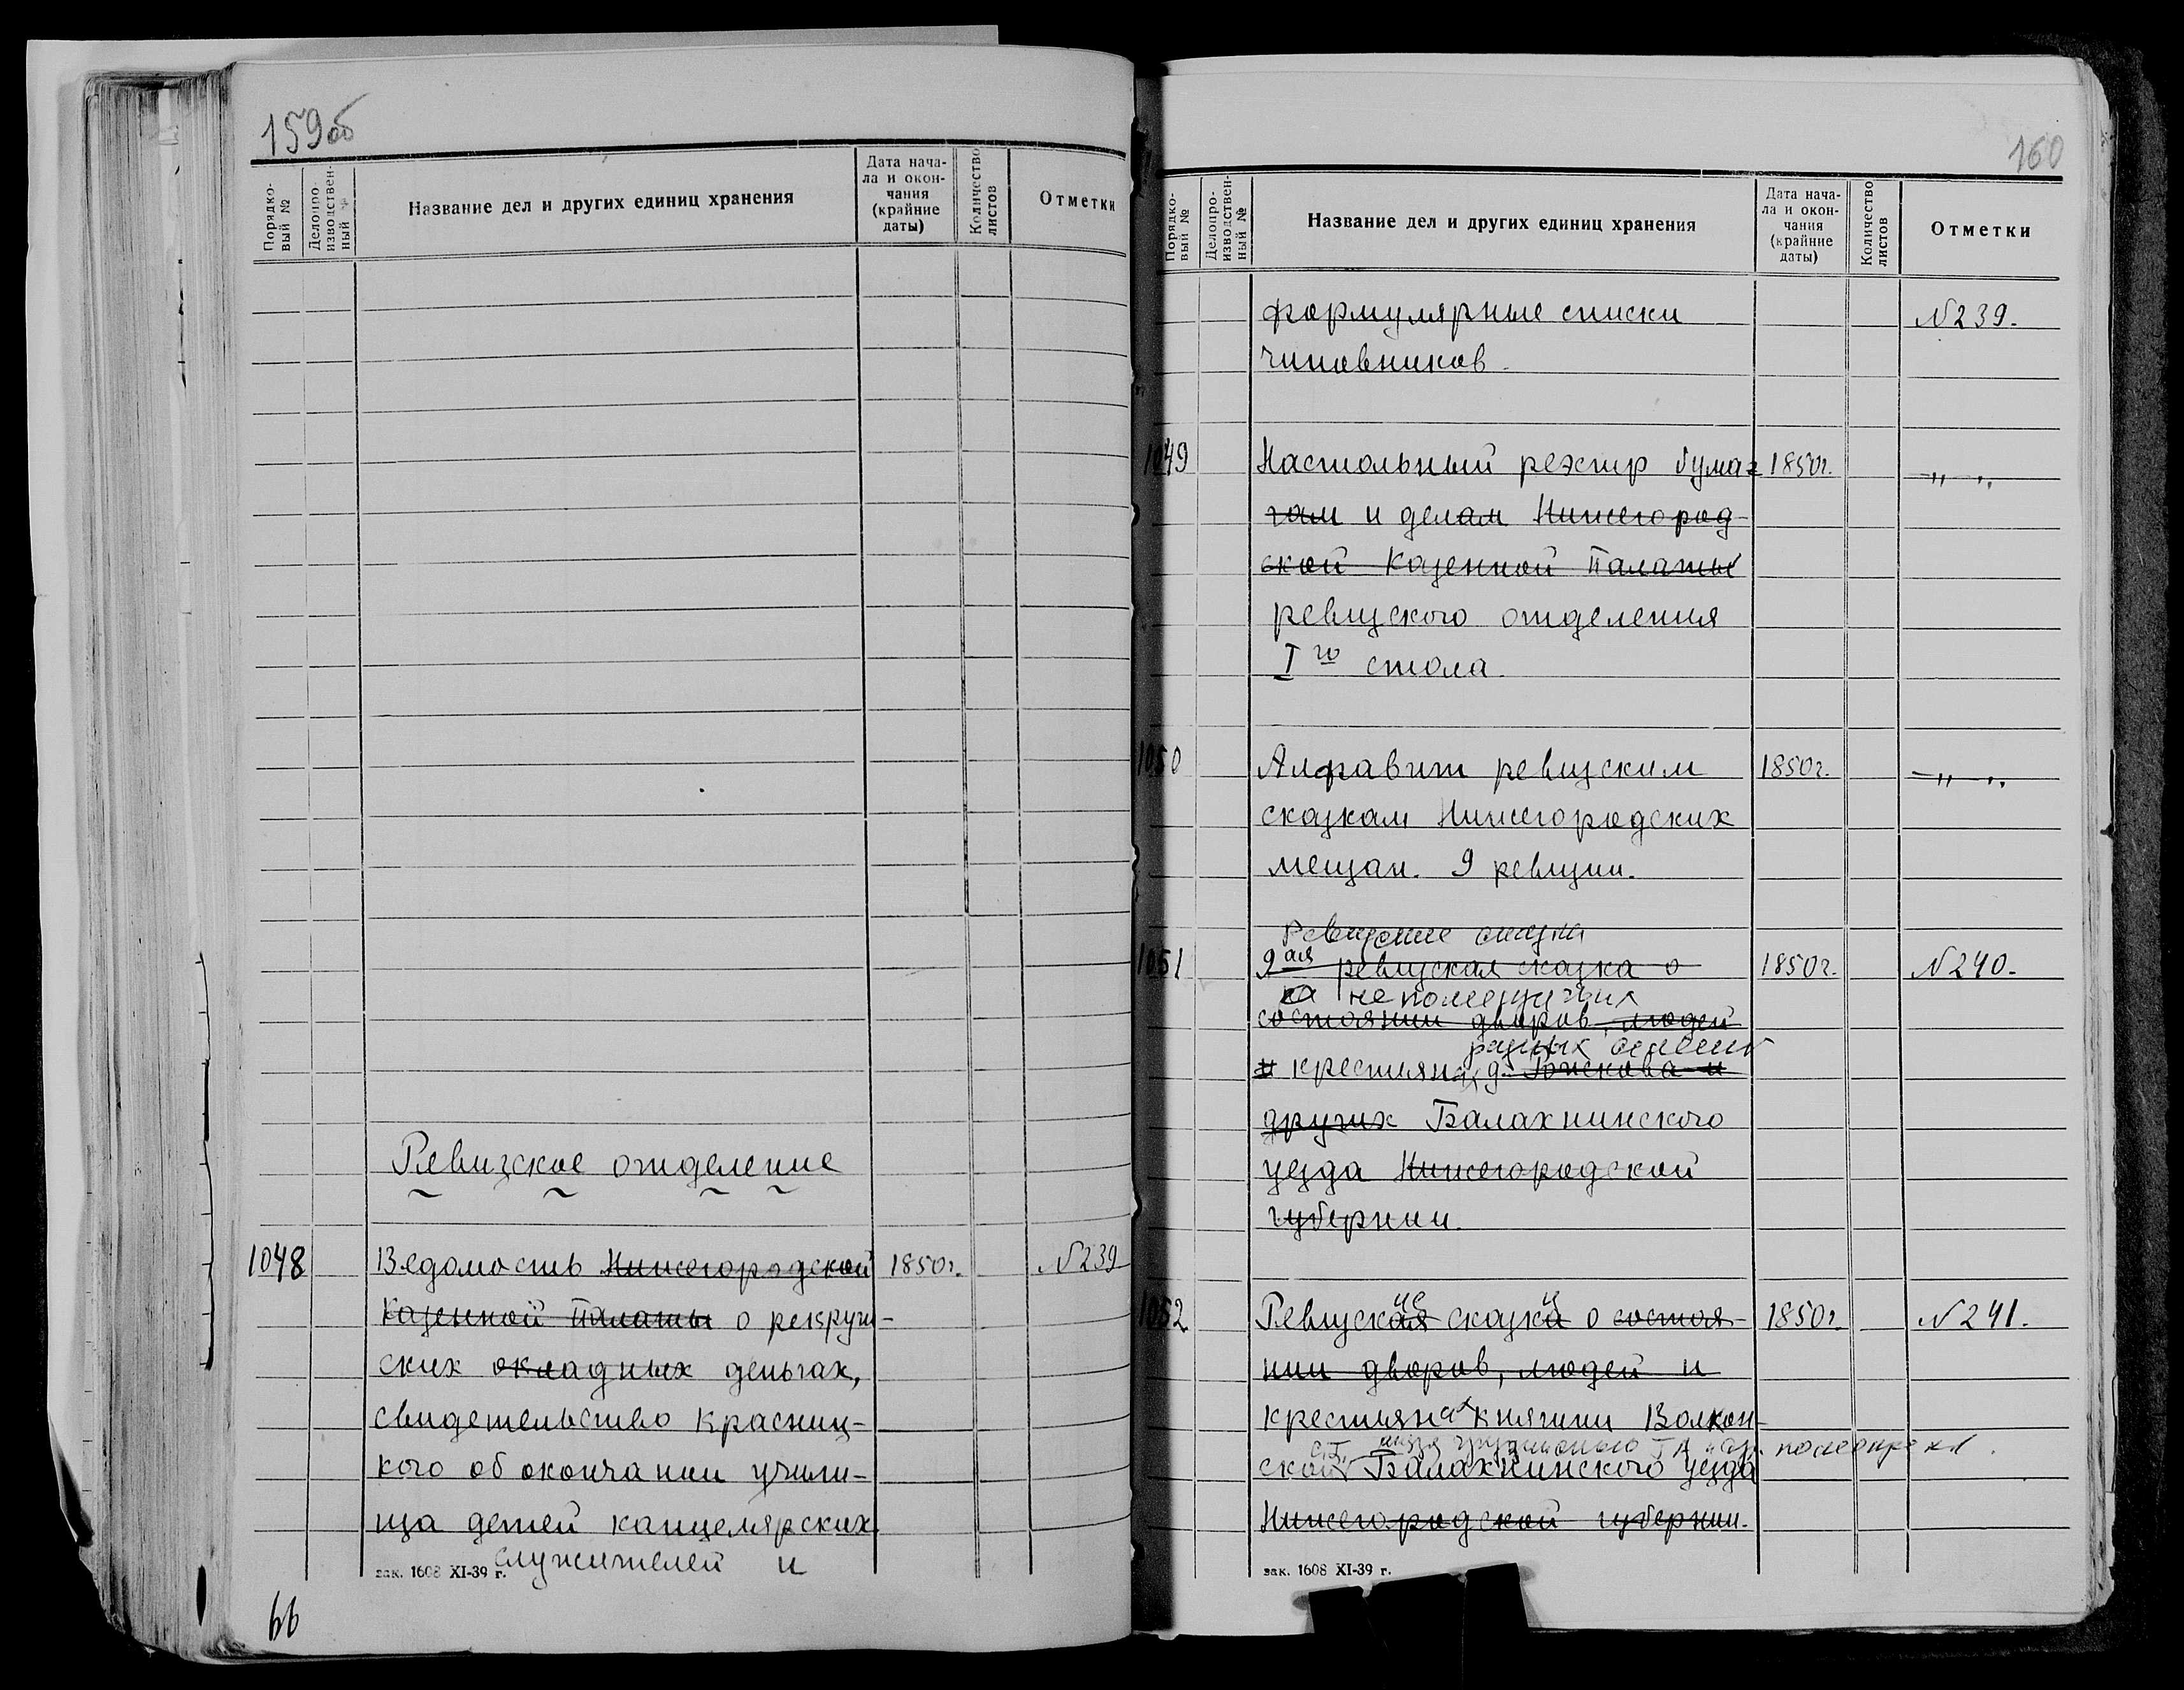 159об
Порядко-
вый №
Делопро-
изводствен-
ный №
Название дел и других единиц хранения
Дата нача-
ла и окон-
чания
(крайние
даты)
Количество
листов
Отметки
Ревизское отделение
1048 Ведомость Нижегородской 1850г. №239
Казенной Палаты о рекрут-
ских окладных деньгах,
свидетельство Красниц-
кого об окончании учили-
ща детей канцелярских
служителей и
зак. 1608 XI-39 г.
66
160
Порядко-
вый №
Делопро-
изводствен-
ный №
Название дел и других единиц хранения
Дата нача-
ла и окон-
чания
(крайние
даты)
Количество
листов
Отметки
формулярные списки №239.
чиновников.
1049 Настольный реэстр бума- 1850г. —"—".
гам и делам Нижегород-
ской Казенной Палаты
ревизского отделения
I го стола.
1050 Алфавит ревизским 1850г. —"—".
сказкам Нижегородских
мещан. 9 ревизии.
Ревизские сказки
1051 9ая ревизская сказка о 1850г. №240.
на непомещичьих
состоянии дворов, людей
разных селений
и крестьянах д. Божкова и
других Балахнинского
уезда Нижегородской
губернии.
ие и
1052 Ревизская сказка о состоя- 1850г. №241.
нии дворов, людей и
крестьянах княгини Волкон-
князя Грузинского и др. помещиков
ской Балахнинского уезда
Нижегородской губернии.
зак. 1608 XI-39 г.